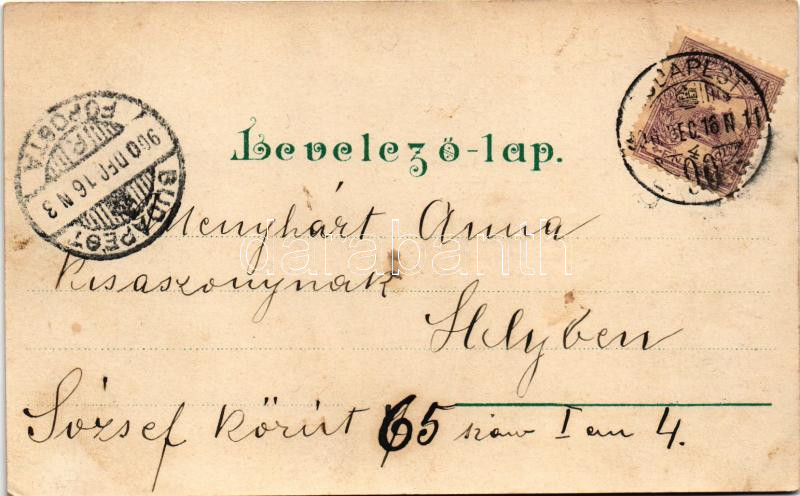 BUDAPEST
DEC 16 N 11
BUDAPEST
FŐPOSTA
900 DEC. 16 N 3
Levelező-lap.
Menyhárt Anna
darabanth
Kisaszonynak
Helyben
József Körút 65 szám I em 4.